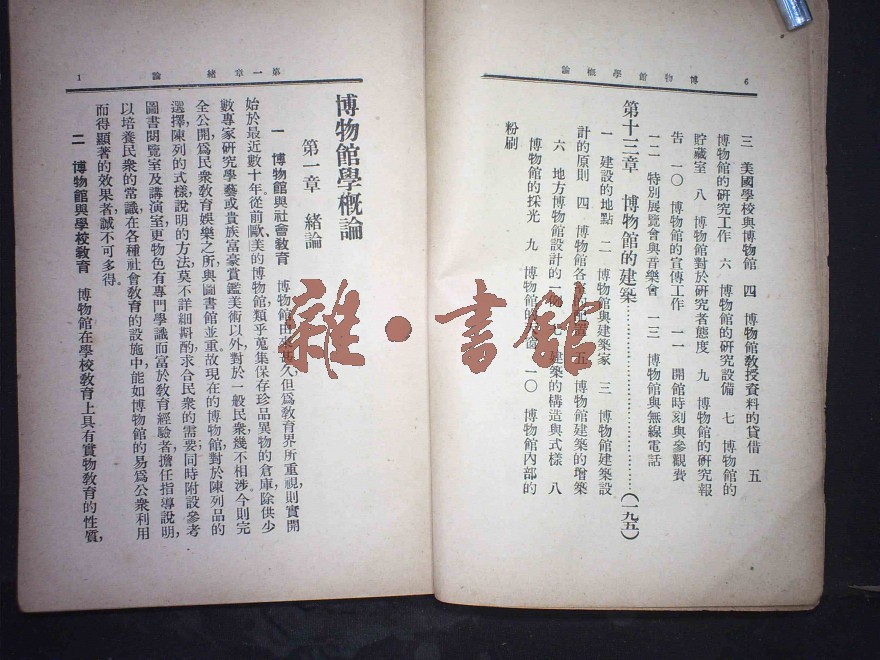 6
博物館學概論
三　美國學校與博物館　四　博物館教授資料的貸借　五
博物館的研究工作　六　博物館的研究設備　七　博物館的
貯藏室　八　博物館對於研究者態度　九　博物館的研究報
告　一〇　博物館的宣傳工作　一一　開館時刻與參觀費
一二　特別展覽會與音樂會　一三　博物館與無線電話
第十三章　博物館的建築……………………(一九五)
一　建設的地點　二　博物館與建築家　三　博物館建築設
計的原則　四　博物館各室的配置　五　博物館建築的增築
六　地方博物館設計的一例　七　建築的構造與式樣　八
博物館的採光　九　博物館的　一〇　博物館內部的
粉刷
第一章　緒論
1
博物館學概論
第一章　緒論
一　博物館與社會教育　博物館由來甚久但爲教育界所重視，則實開
始於最近數十年從前歐、美的博物館類乎蒐集保存珍品異物的倉庫，除供少
數專家研究學藝或貴族富豪賞鑑美術以外，對於一般民衆幾不相涉。今則完
全公開，爲民衆教育娛樂之所，與圖書館並重。故現在的博物館，對於陳列品的
選擇，陳列的式樣，說明的方法，莫不詳細斟酌，求合民衆的需要；同時附設參考
圖書閱覽室及講演室，更物色有專門學識而富於教育經驗者擔任指導說明，
以培養民衆的常識，在各種社會教育的設施中，能如博物館的易爲公衆利用
而得顯著的效果者，誠不可多得。
二　博物館與學校教育　博物館在學校教育上具有實物教育的性質，
雜·書館